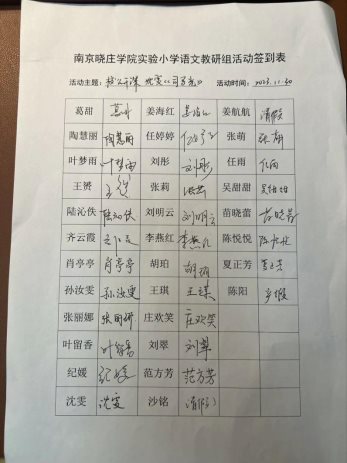 南京晓庄学院实验小学语文教研组活动签到表
活动主题： 活动时间：2023.11.30
葛甜 葛甜 姜海红 姜海红 姜航航 请假
陶慧丽 陶慧丽 任婷婷 任婷婷 张萌 张萌
叶梦雨 叶梦雨 刘彤 刘彤 任雨 任雨
王赟 王赟 张莉 张莉 吴甜甜 吴甜甜
陆沁佚 陆沁佚 刘明云 刘明云 苗晓蕾 苗晓蕾
齐云霞 齐云霞 李燕红 李燕红 陈悦悦 陈悦悦
肖亭亭 肖亭亭 胡珀 胡珀 夏正芳 夏正芳
孙汝雯 孙汝雯 王琪 王琪 陈阳 产假
张丽娜 张丽娜 庄欢笑 庄欢笑
叶留香 叶留香 刘翠 刘翠
纪媛 纪媛 范方芳 范方芳
沈雯 沈雯 沙铭 请假